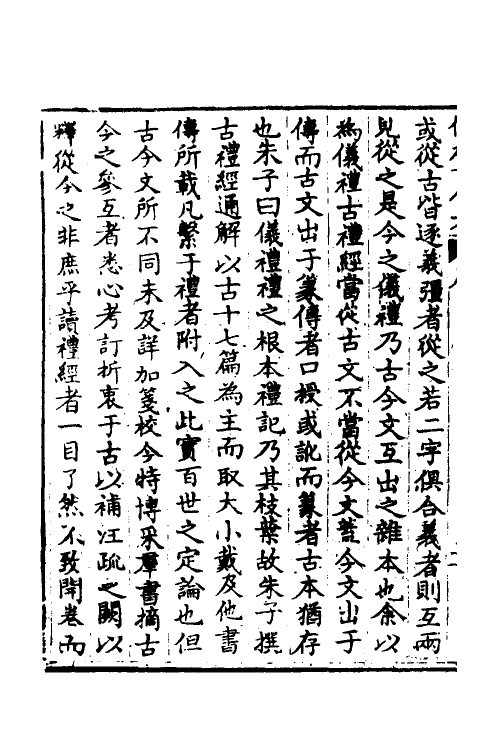 或從古皆逐義彊者從之若二字俱合義者則互兩
見從之是今之儀禮乃古今文互出之雜本也余以
為儀禮古禮經當從古文不當從今文蓋今文出于
傳而古文出于篆傳者口授或訛而篆者古本猶存
也朱子曰儀禮禮之根本禮記乃其枝葉故朱子撰
古禮經通解以古十七篇為主而取大小戴及他書
傳所載凡繫于禮者附入之此實百世之定論也但
古今文所不同未及詳加箋校今特博采群書摘古
今之參互者悉心考訂折衷于古以補注疏之闕以
釋從今之非庶乎讀禮經者一目了然不致開卷而